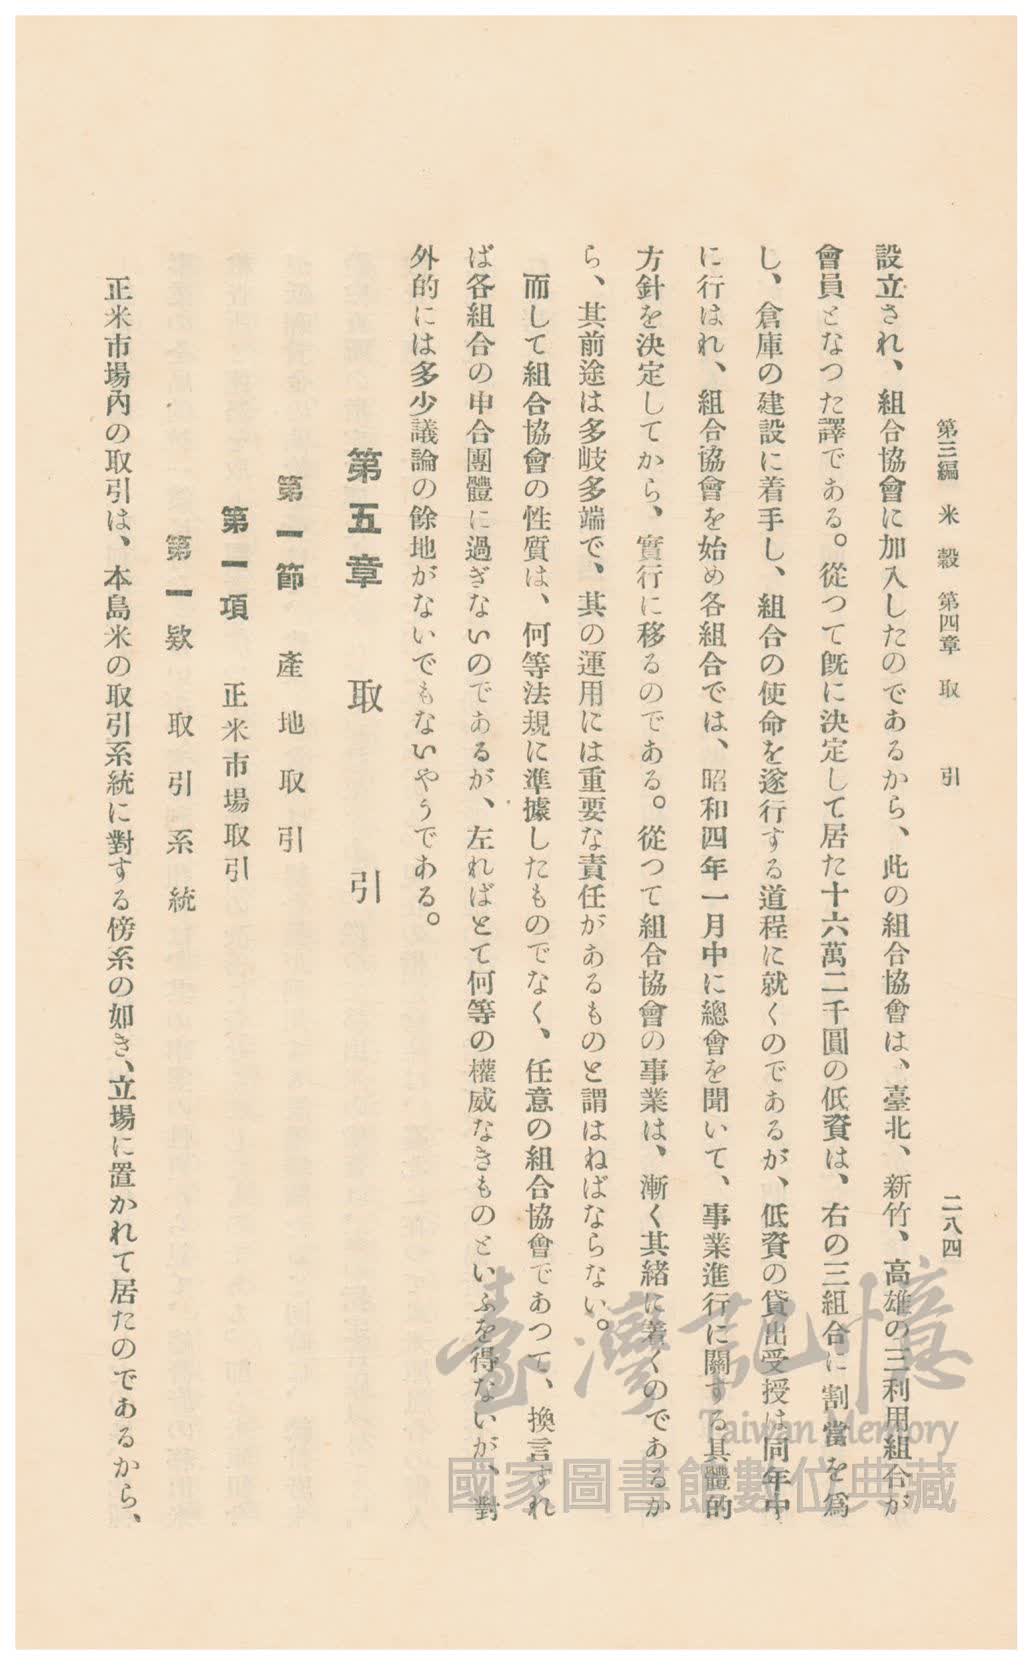 第三編 米穀 第四章 取引 二八四
設立され、組合協會に加入したのであるから、此の組合協會は、臺北、新竹、高雄の三利用組合が
會員となつた譯である。從つて既に決定して居た十六萬二千圓の低資は、右の三組合に割當を爲
し、倉庫の建設に着手し、組合の使命を遂行する道程に就くのであるが、低資の貸出受授は同年中
に行はれ、組合協會を始め各組合では、昭和四年一月中に總會を開いて、事業進行に關する具體的
方針を決定してから、實行に移るのである。從つて組合協會の事業は、漸く其緒に着くのであるか
ら、其前途は多岐多端で、其の運用には重要な責任があるものと謂はねばならない。
而して組合協會の性質は、何等法規に準據したものでなく、任意の組合協會であつて、換言すれ
ば各組合の申合團體に過ぎないのであるが、左ればとて何等の權威なきものといふを得ないが、對
外的には多少議論の餘地がないでもないやうである。
第五章 取引
第一節 產地取引
第一項 正米市場取引
第一欵 取引系統
正米市場內の取引は、本島米の取引系統に對する傍系の如き、立場に置かれて居たのであるから、
臺灣記憶
Taiwan Memory
國家圖書館數位典藏